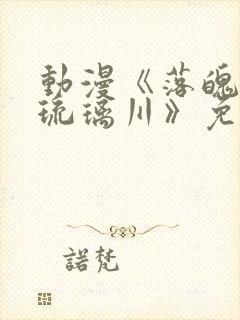 動漫《落魄
琉璃川》免
諾梵